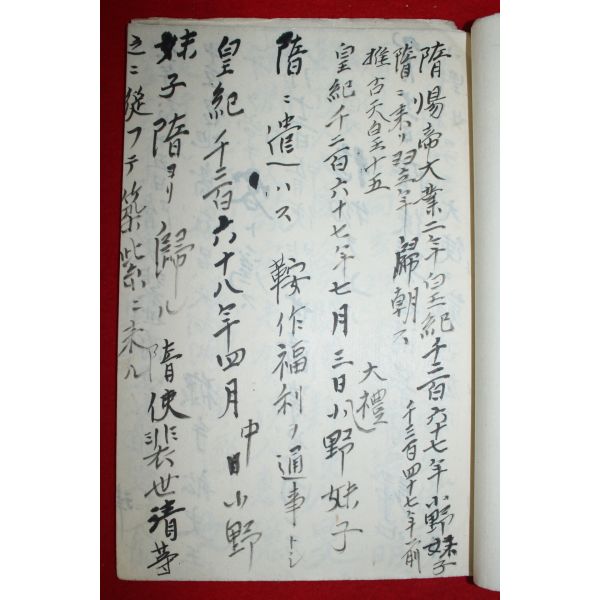 隋煬帝大業二年皇紀千二百六十七年小野妹子
隋ニ来リ翌年帰朝ス 千三百四十七年前
推古天皇十五
皇紀千二百六十七年七月三日小野妹子
大禮
隋ニ遣ハス 鞍作福利ヲ通事トシ
皇紀千二百六十八年四月中日小野
妹子隋ヨリ歸ル 隋使裴世清等
之ニ従フテ築紫ニ来ル